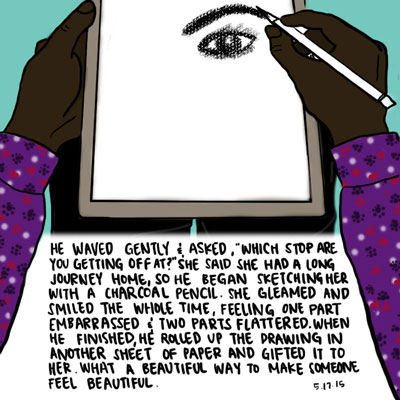 HE WAVED GENTLY & ASKED, "WHICH STOP ARE
YOU GETTING OFF AT?" SHE SAID SHE HAD A LONG
JOURNEY HOME, SO HE BEGAN SKETCHING HER
WITH A CHARCOAL PENCIL. SHE GLEAMED AND
SMILED THE WHOLE TIME, FEELING ONE PART
EMBARRASSED & TWO PARTS FLATTERED. WHEN
HE FINISHED, HE ROLLED UP THE DRAWING IN
ANOTHER SHEET OF PAPER AND GIFTED IT TO
HER. WHAT A BEAUTIFUL WAY TO MAKE SOMEONE
FEEL BEAUTIFUL.
5.17.15